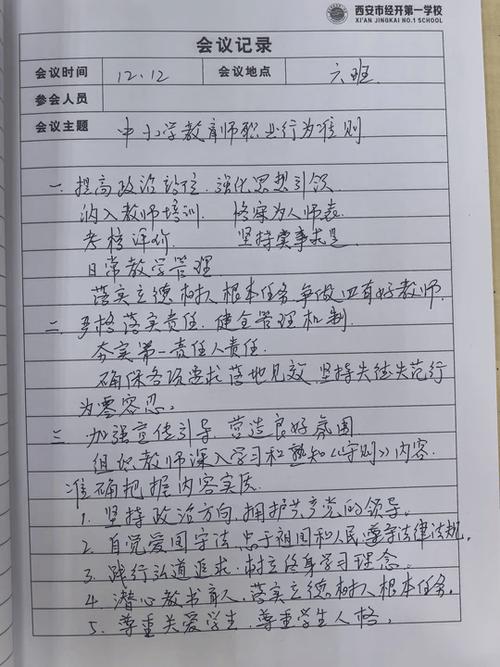 西安市经开第一学校
XI'AN JINGKAI NO.1 SCHOOL
会议记录
会议时间 12.12 会议地点 六班
参会人员
会议主题 中小学教育师职业行为准则
一. 提高政治站位. 强化思想引领.
纳入教师培训. 为人师表
考核评价 坚持实事求是.
日常教学管理
落实立德树人根本任务. 争做四有好教师.
二. 严格落实责任. 健全管理机制.
夯实第一责任人责任.
确保各项要求落地见效. 坚持失德失范行
为零容忍。
三. 加强宣传引导. 营造良好氛围
组织教师深入学习和熟知《守则》内容.
准确把握内容实质.
1. 坚持政治方向. 拥护共产党的领导.
2. 自觉爱国守法. 忠于祖国和人民. 遵守法律法规.
3. 践行弘道追求. 树立终身学习理念.
4. 潜心教书育人. 落实立德树人根本任务.
5. 尊重关爱学生. 尊重学生人格.